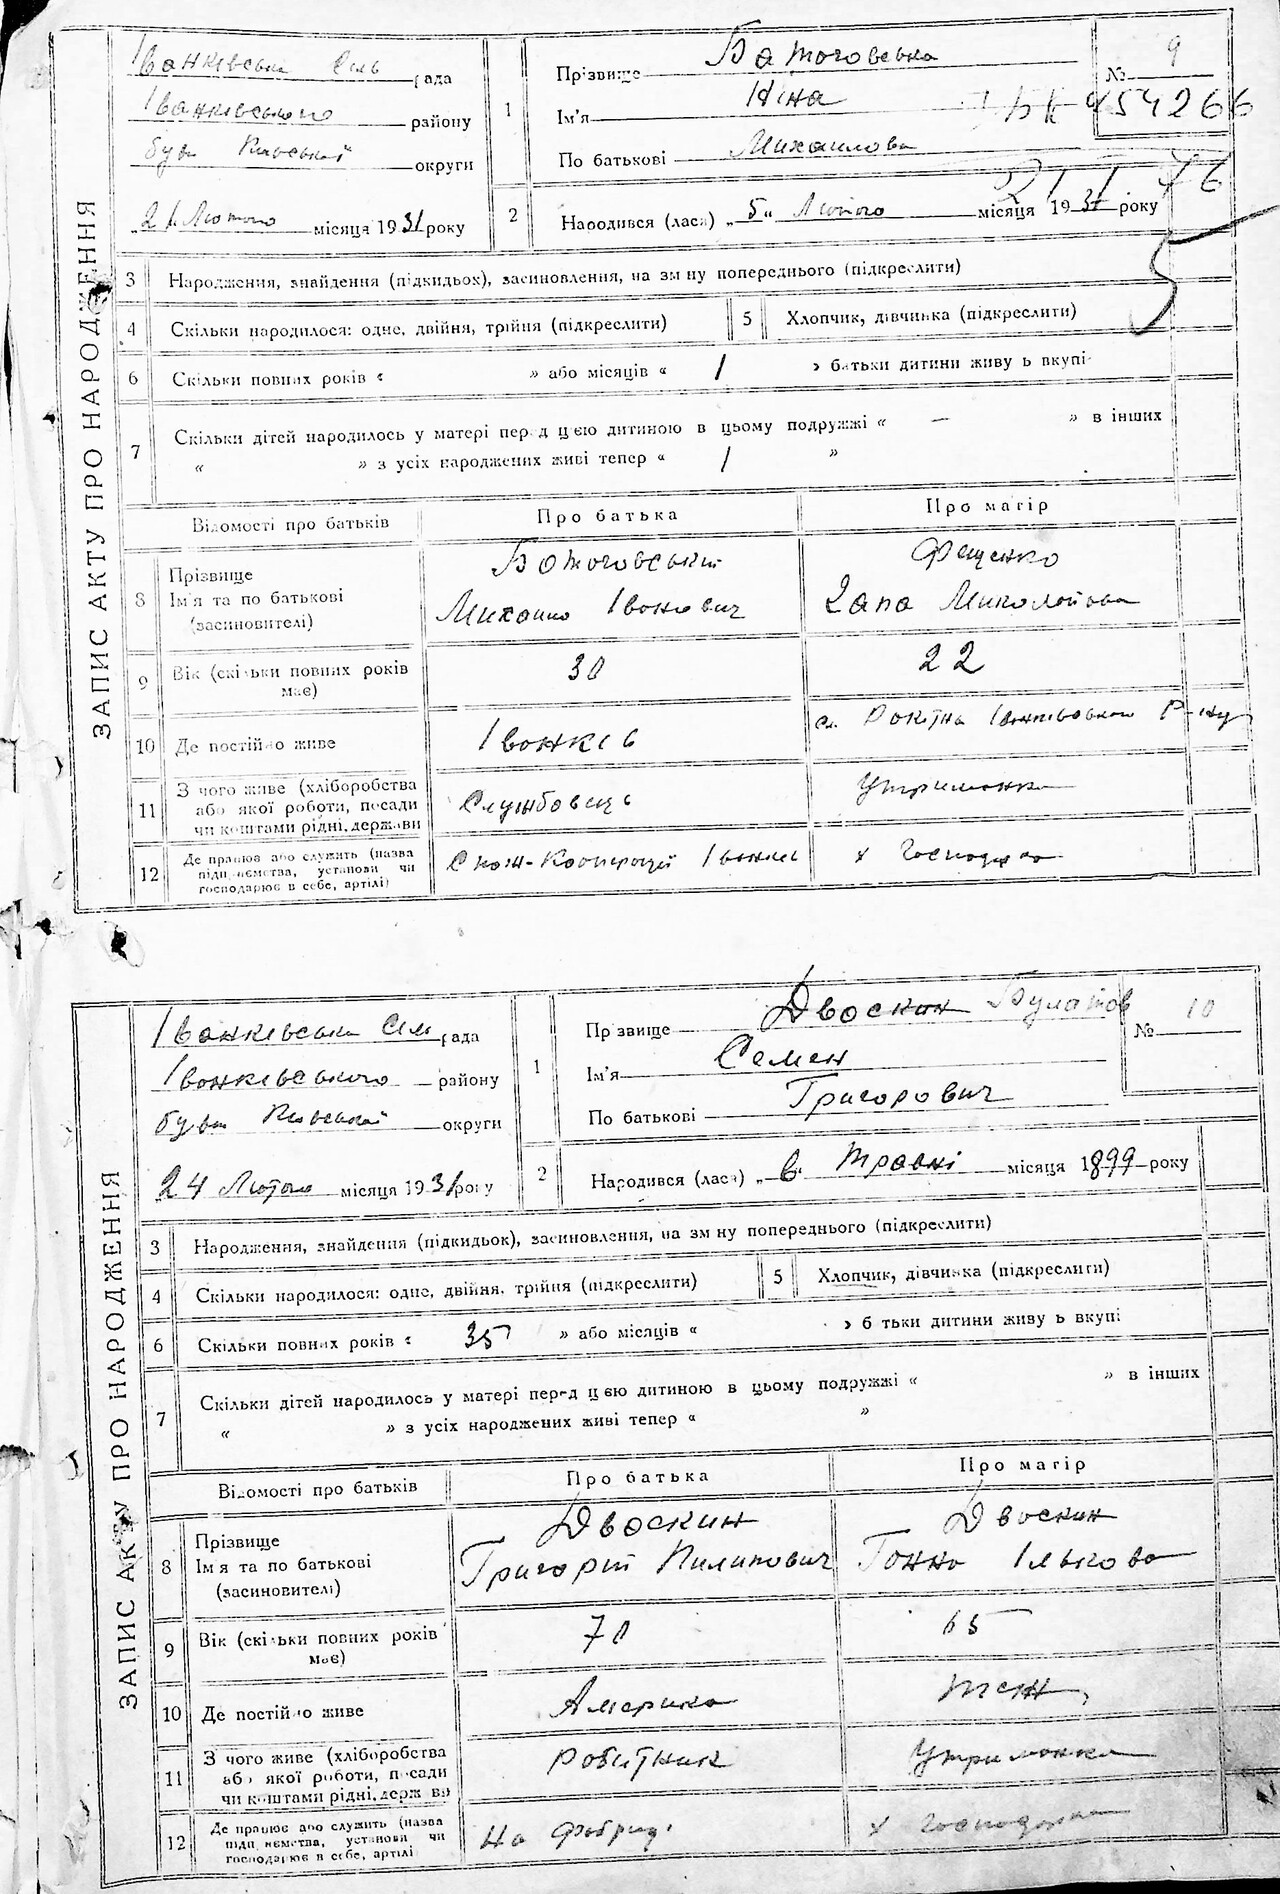 ЗАПИС АКТУ ПРО НАРОДЖЕННЯ
Іванківська Сіль рада
Іванківського району
бувш Київської округи
21 Лютого місяця 1931 року
1
Прізвище Батоговська
Ім'я Ніна
По батькові Михайлова
№ 9
454266
2
Народився (лась) „5“ Лютого місяця 1931 року
3 Народження, знайдення (підкидьок), засиновлення, на зміну попереднього (підкреслити)
4 Скільки народилося: одне, двійня, трійня (підкреслити)
5 Хлопчик, дівчинка (підкреслити)
6 Скільки повних років « » або місяців « 1 » батьки дитини живуть вкупі
7 Скільки дітей народилось у матері перед цією дитиною в цьому подружжі « — » в інших
« » з усіх народжених живі тепер « 1 »
Відомості про батьків Про батька Про матір
8 Прізвище Ім'я та по батькові (засиновителі)
Батоговський Михайло Іванович
Фещенко Галя Миколаївна
9 Вік (скільки повних років має) 30 22
10 Де постійно живе Іванків
11 З чого живе (хліборобства або якої роботи, посади чи коштами рідні, держави Службовець Утриманка
12 Де працює або служить (назва підприємства, установи чи господарює в себе, артілі) Спож-Кооперації Іванків х Господарка
ЗАПИС АКТУ ПРО НАРОДЖЕННЯ
Іванківська Сіл рада
Іванківського району
бувш Київської округи
24 Лютого місяця 1931 року
1
Прізвище Двоскин Булатов
Ім'я Семен
По батькові Григорович
№ 10
2
Народився (лась) „в“ травні місяця 1899 року
3 Народження, знайдення (підкидьок), засиновлення, на зміну попереднього (підкреслити)
4 Скільки народилося: одне, двійня, трійня (підкреслити)
5 Хлопчик, дівчинка (підкреслити)
6 Скільки повних років « 35 » або місяців « » батьки дитини живуть вкупі
7 Скільки дітей народилось у матері перед цією дитиною в цьому подружжі « » в інших
« » з усіх народжених живі тепер « »
Відомості про батьків Про батька Про матір
8 Прізвище Ім'я та по батькові (засиновителі)
Двоскин Григорій Пилипович
Двоскин Ганна Ількова
9 Вік (скільки повних років має) 70 65
10 Де постійно живе Америка теж
11 З чого живе (хліборобства або якої роботи, посади чи коштами рідні, держави Робітник Утриманка
12 Де працює або служить (назва підприємства, установи чи господарює в себе, артілі На Фабриці х Господарка